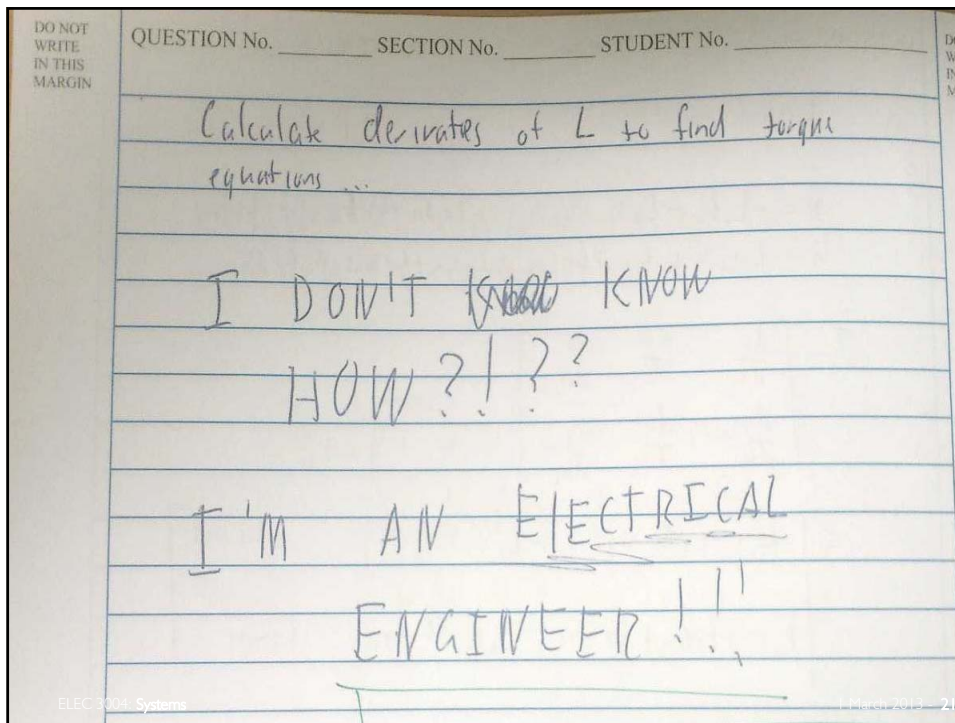 DO NOT
WRITE
IN THIS
MARGIN
QUESTION No. SECTION No. STUDENT No.
Calculate derivates of L to find torque
equations ...
I DON'T KNOW
HOW?!??
I'M AN ELECTRICAL
ENGINEER!!!
ELEC 3004 Systems 1 March 2013 21